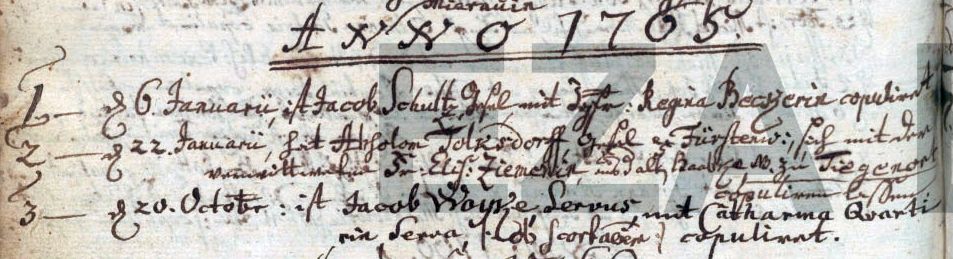 ANNO 1765.
1 — d 6 Januarii, ist Jacob Schultz, Gesel, mit Jgfr: Regina copuliret
2 — d 22. Januarii, hat Tolksdorff Gesel ex Fürstenw:, sich mit der
verwittweten Fr: Elis: Ziemerin, zu Tiegenort
copuliren lassen
3 — d 20. Octobr: ist Jacob Woyke, Servus, mit Catharina Quarti
rin Serva, copuliret.
EZA